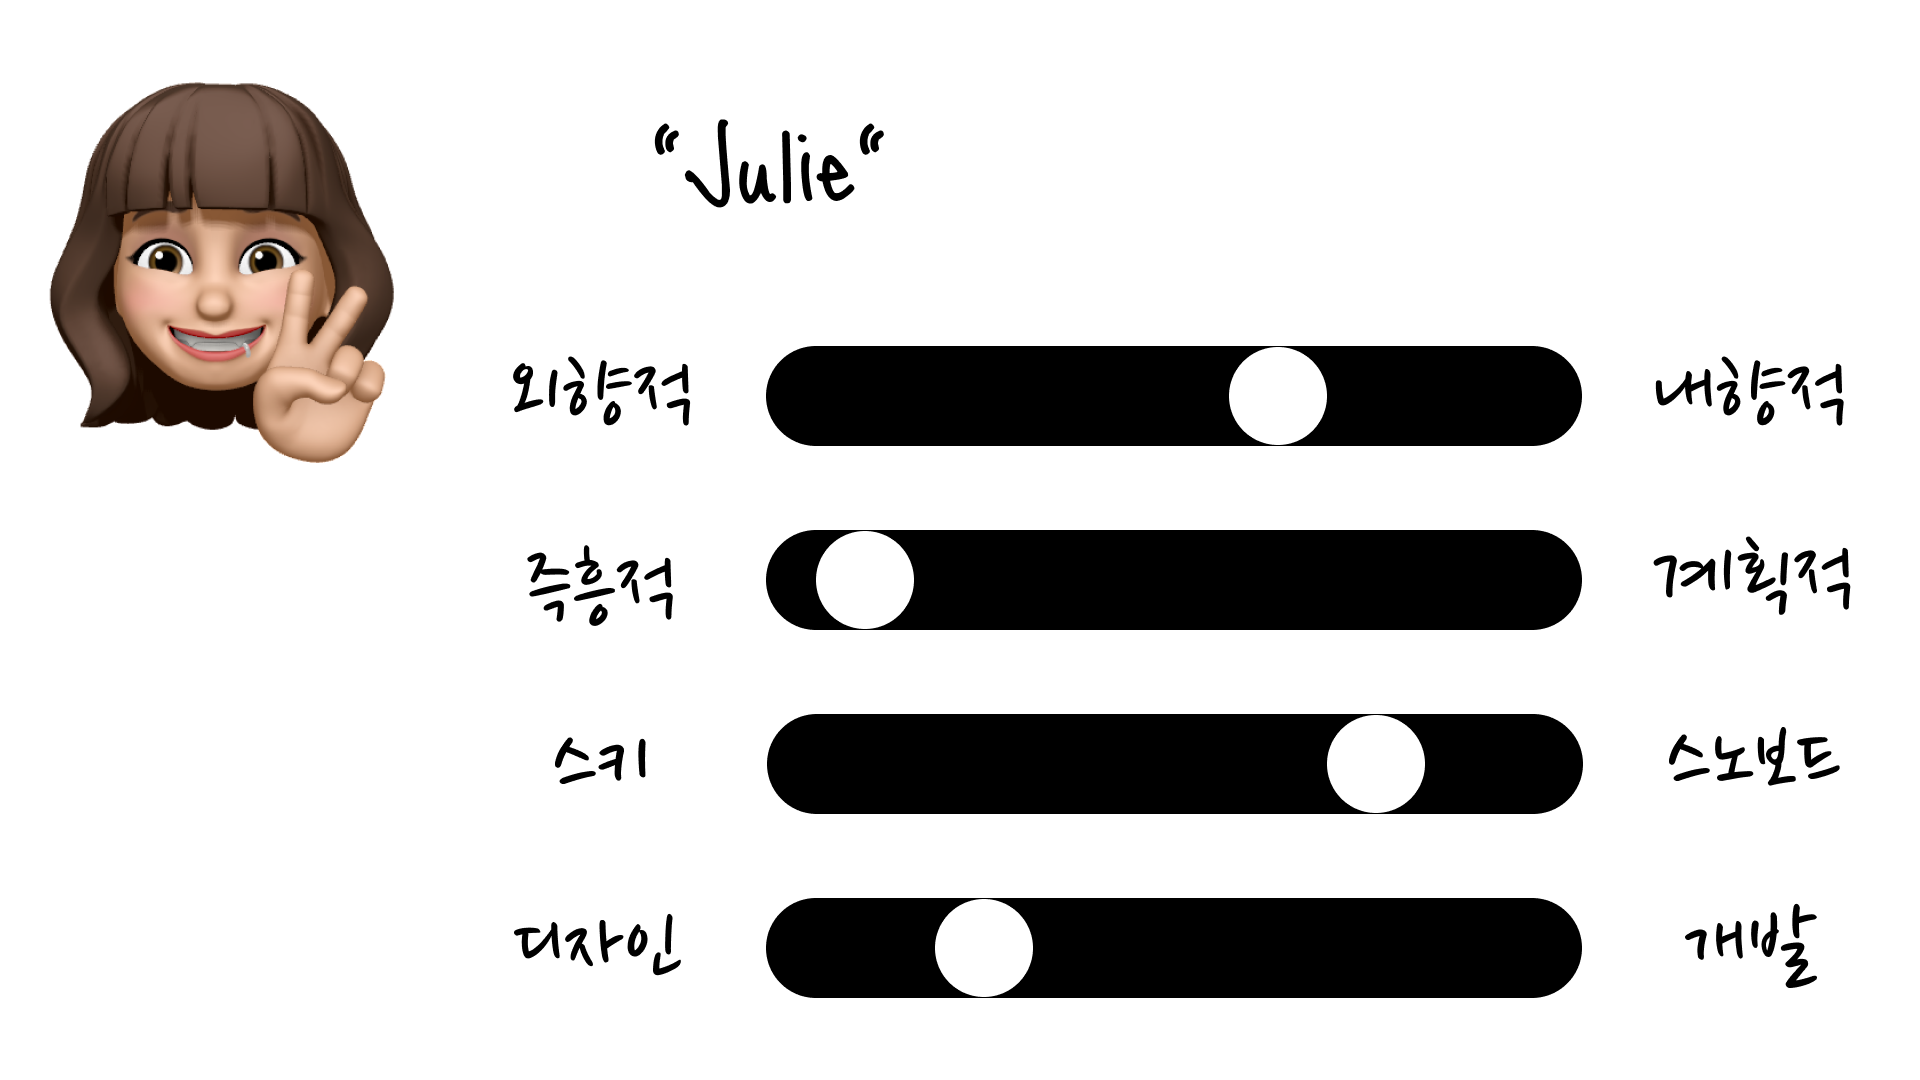 “Julie“
외향적 내향적
즉흥적 계획적
스키 스노보드
디자인 개발